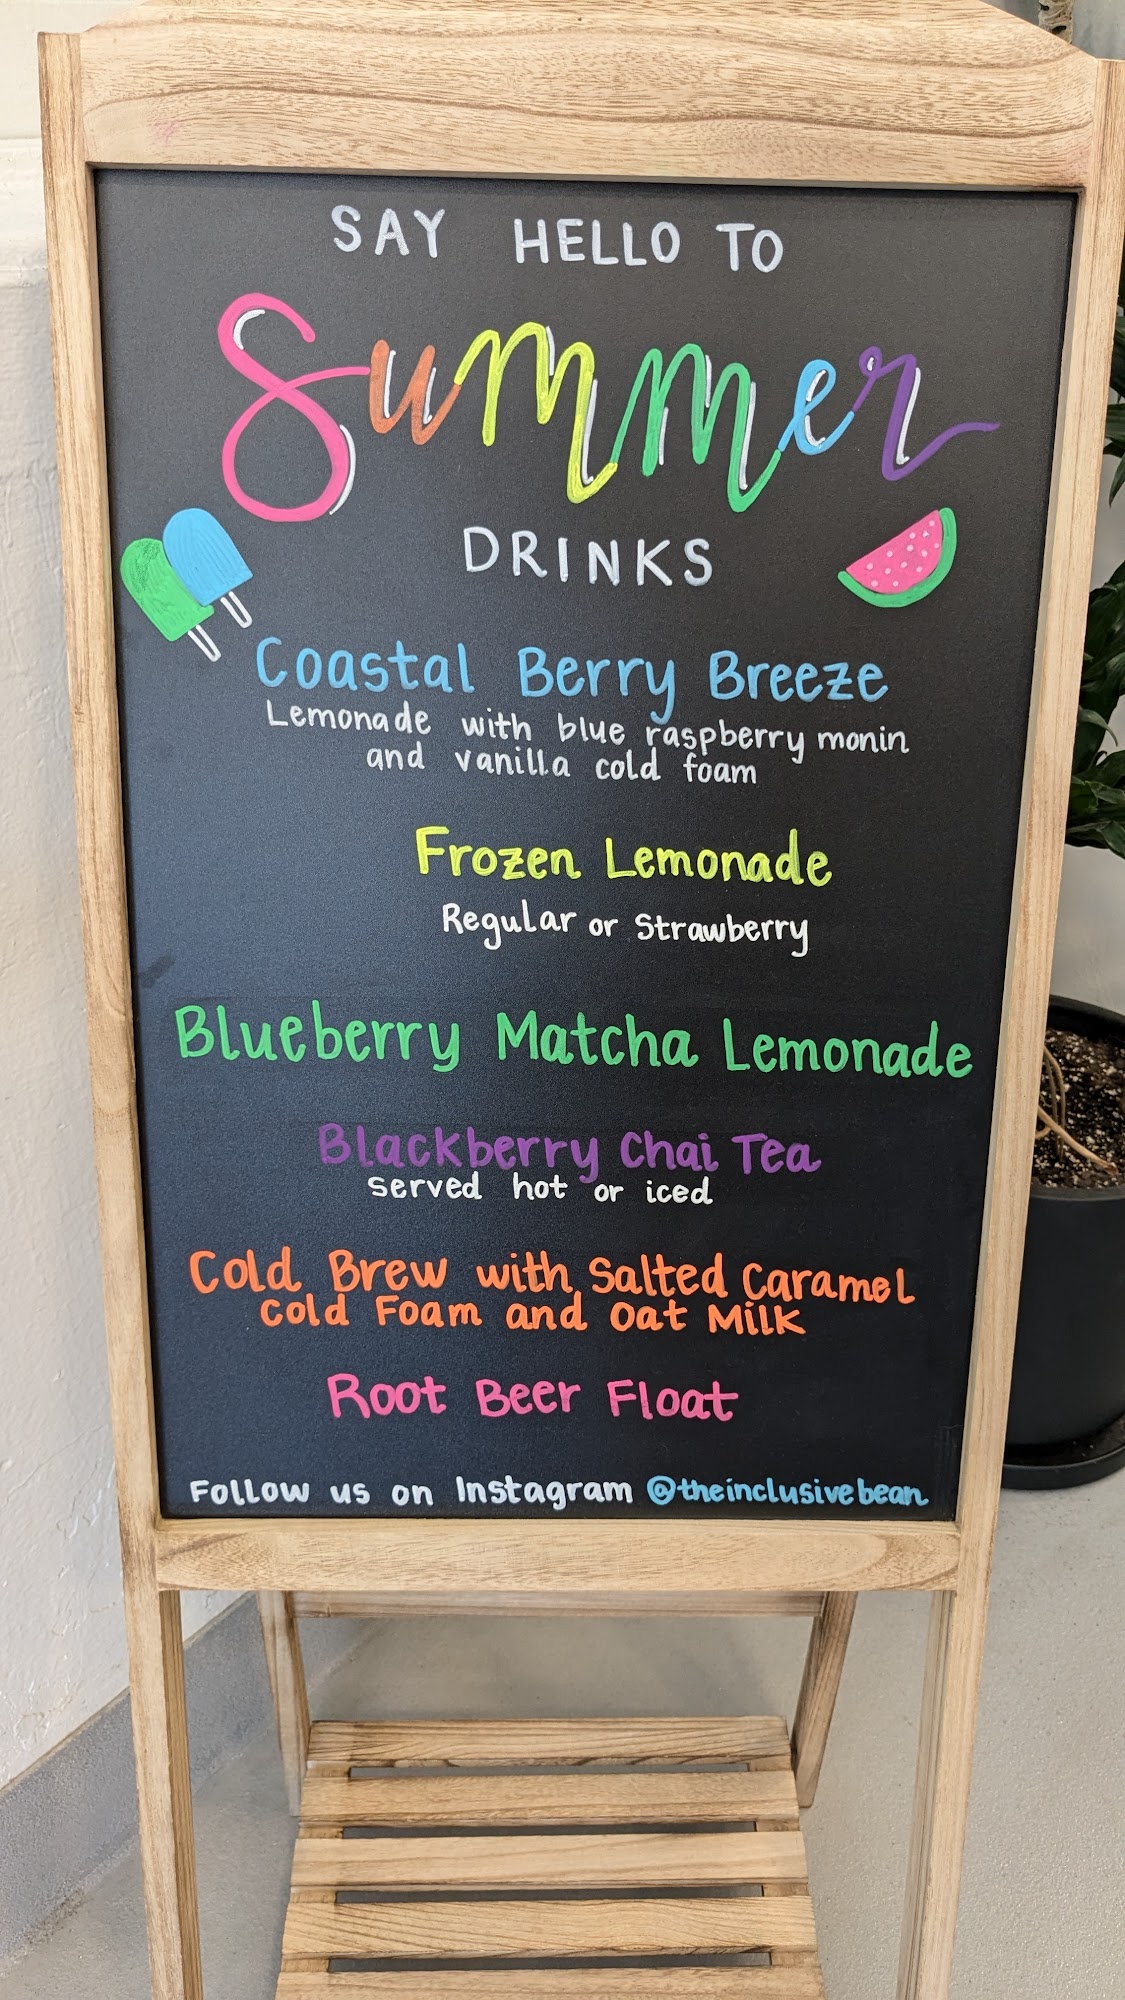 SAY HELLO TO
Summer
DRINKS
Coastal Berry Breeze
Lemonade with blue raspberry monin
and vanilla cold foam
Frozen Lemonade
Regular or Strawberry
Blueberry Matcha Lemonade
Blackberry Chai Tea
served hot or iced
Cold Brew with Salted Caramel
Cold Foam and Oat Milk
Root Beer Float
Follow us on Instagram @theinclusivebean